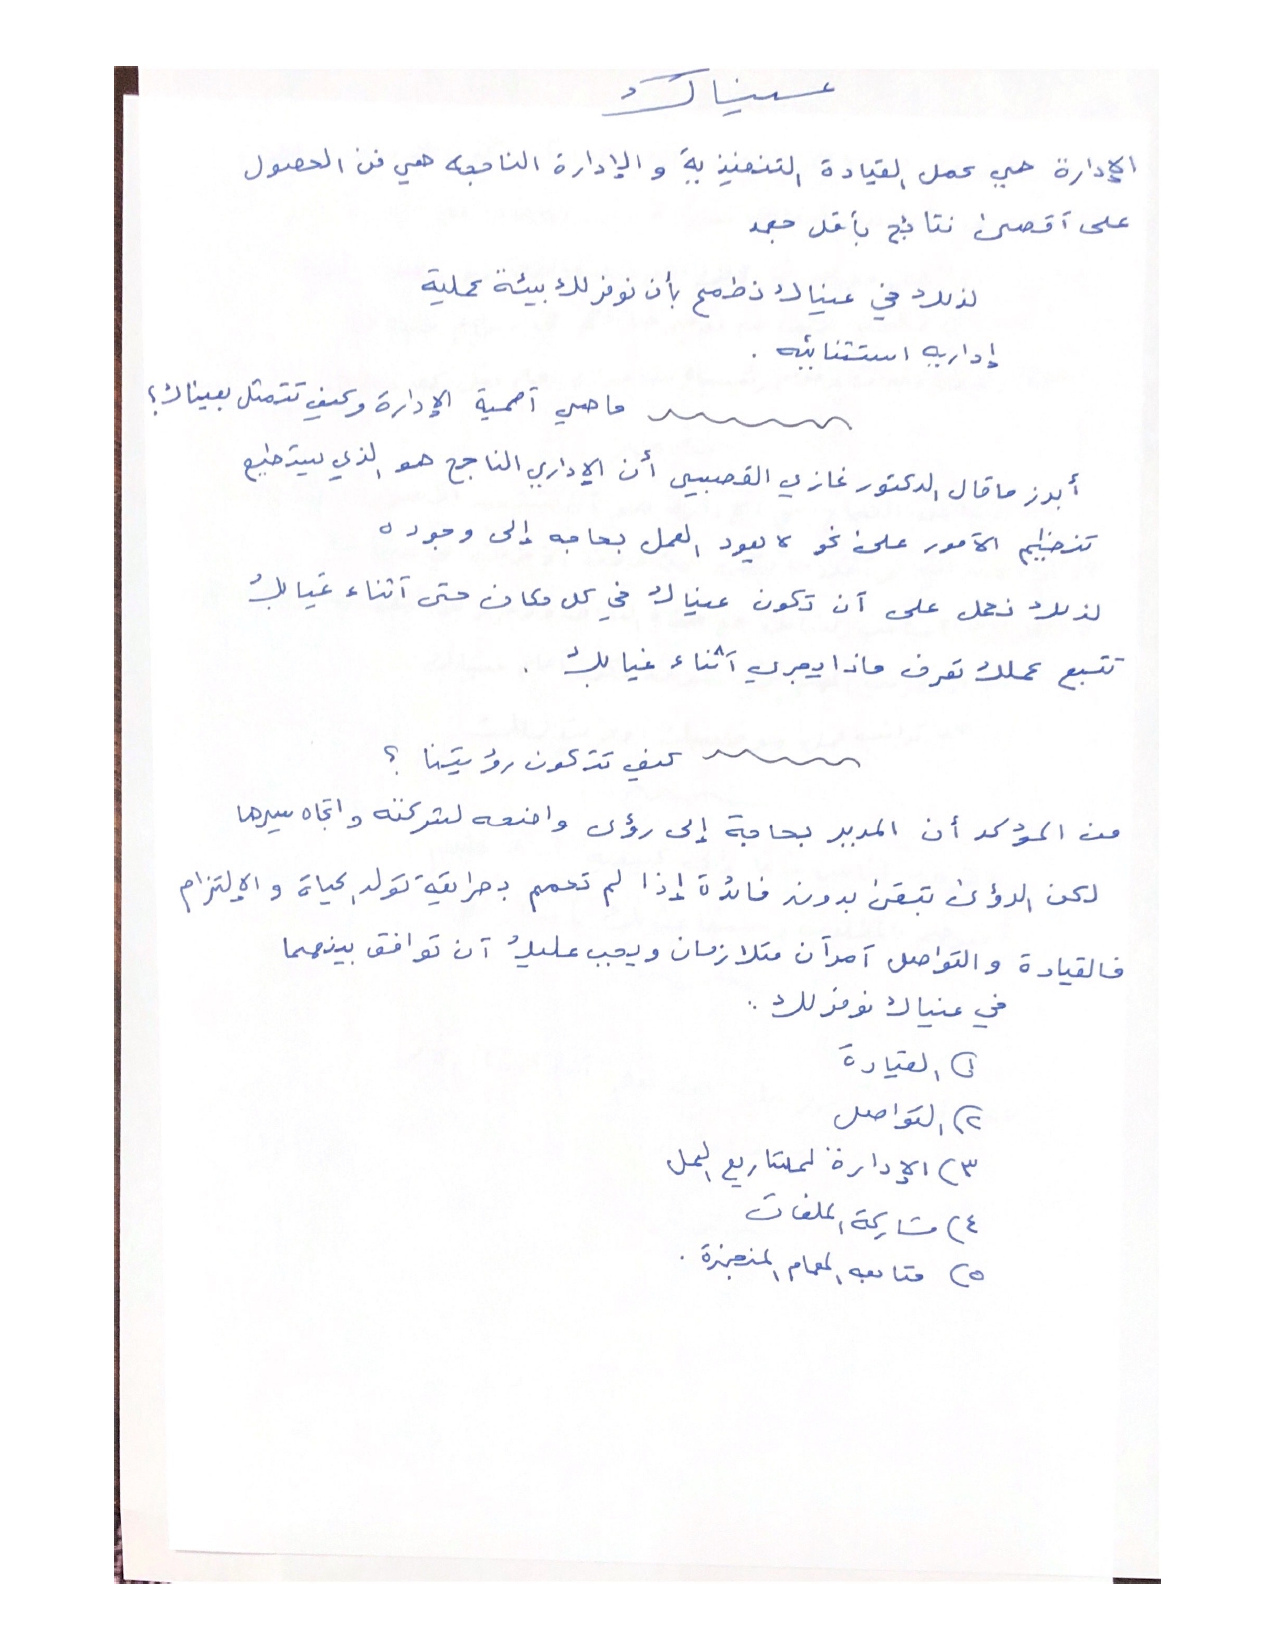 عيناك
الإدارة هي عمل القيادة التنفيذية والإدارة الناجحه هي فن الحصول
على أقصى نتائج بأقل جهد
لذلك في عيناك نطمح بأن نوفر لك بيئة عملية
إداريه استثنائيه .
ماهي أهمية الإدارة وكيف تتمثل بعيناك؟
أبرز ماقال الدكتور غازي القصيبي أن الإداري الناجح هو الذي يستطيع
تنظيم الأمور على نحو لا يعود العمل بحاجه إلى وجوده
لذلك نعمل على أن تكون عيناك في كل مكان حتى أثناء غيابك
تتبع عملك تعرف ماذا يجري أثناء غيابك .
كيف تتكون رؤيتنا ؟
من المؤكد أن المدير بحاجة إلى رؤى واضحه لشركته واتجاه سيرها
لكن الرؤى تبقى بدون فائدة إذا لم تعمم بطريقة تولد الحياة والإلتزام
فالقيادة والتواصل أمرآن متلازمان ويجب عليك أن توافق بينهما
في عيناك نوفر لك :
١) القيادة
٢) التواصل
٣) الإدارة لمشاريع العمل
٤) مشاركة الملفات
٥) متابعه المهام المنجزة .